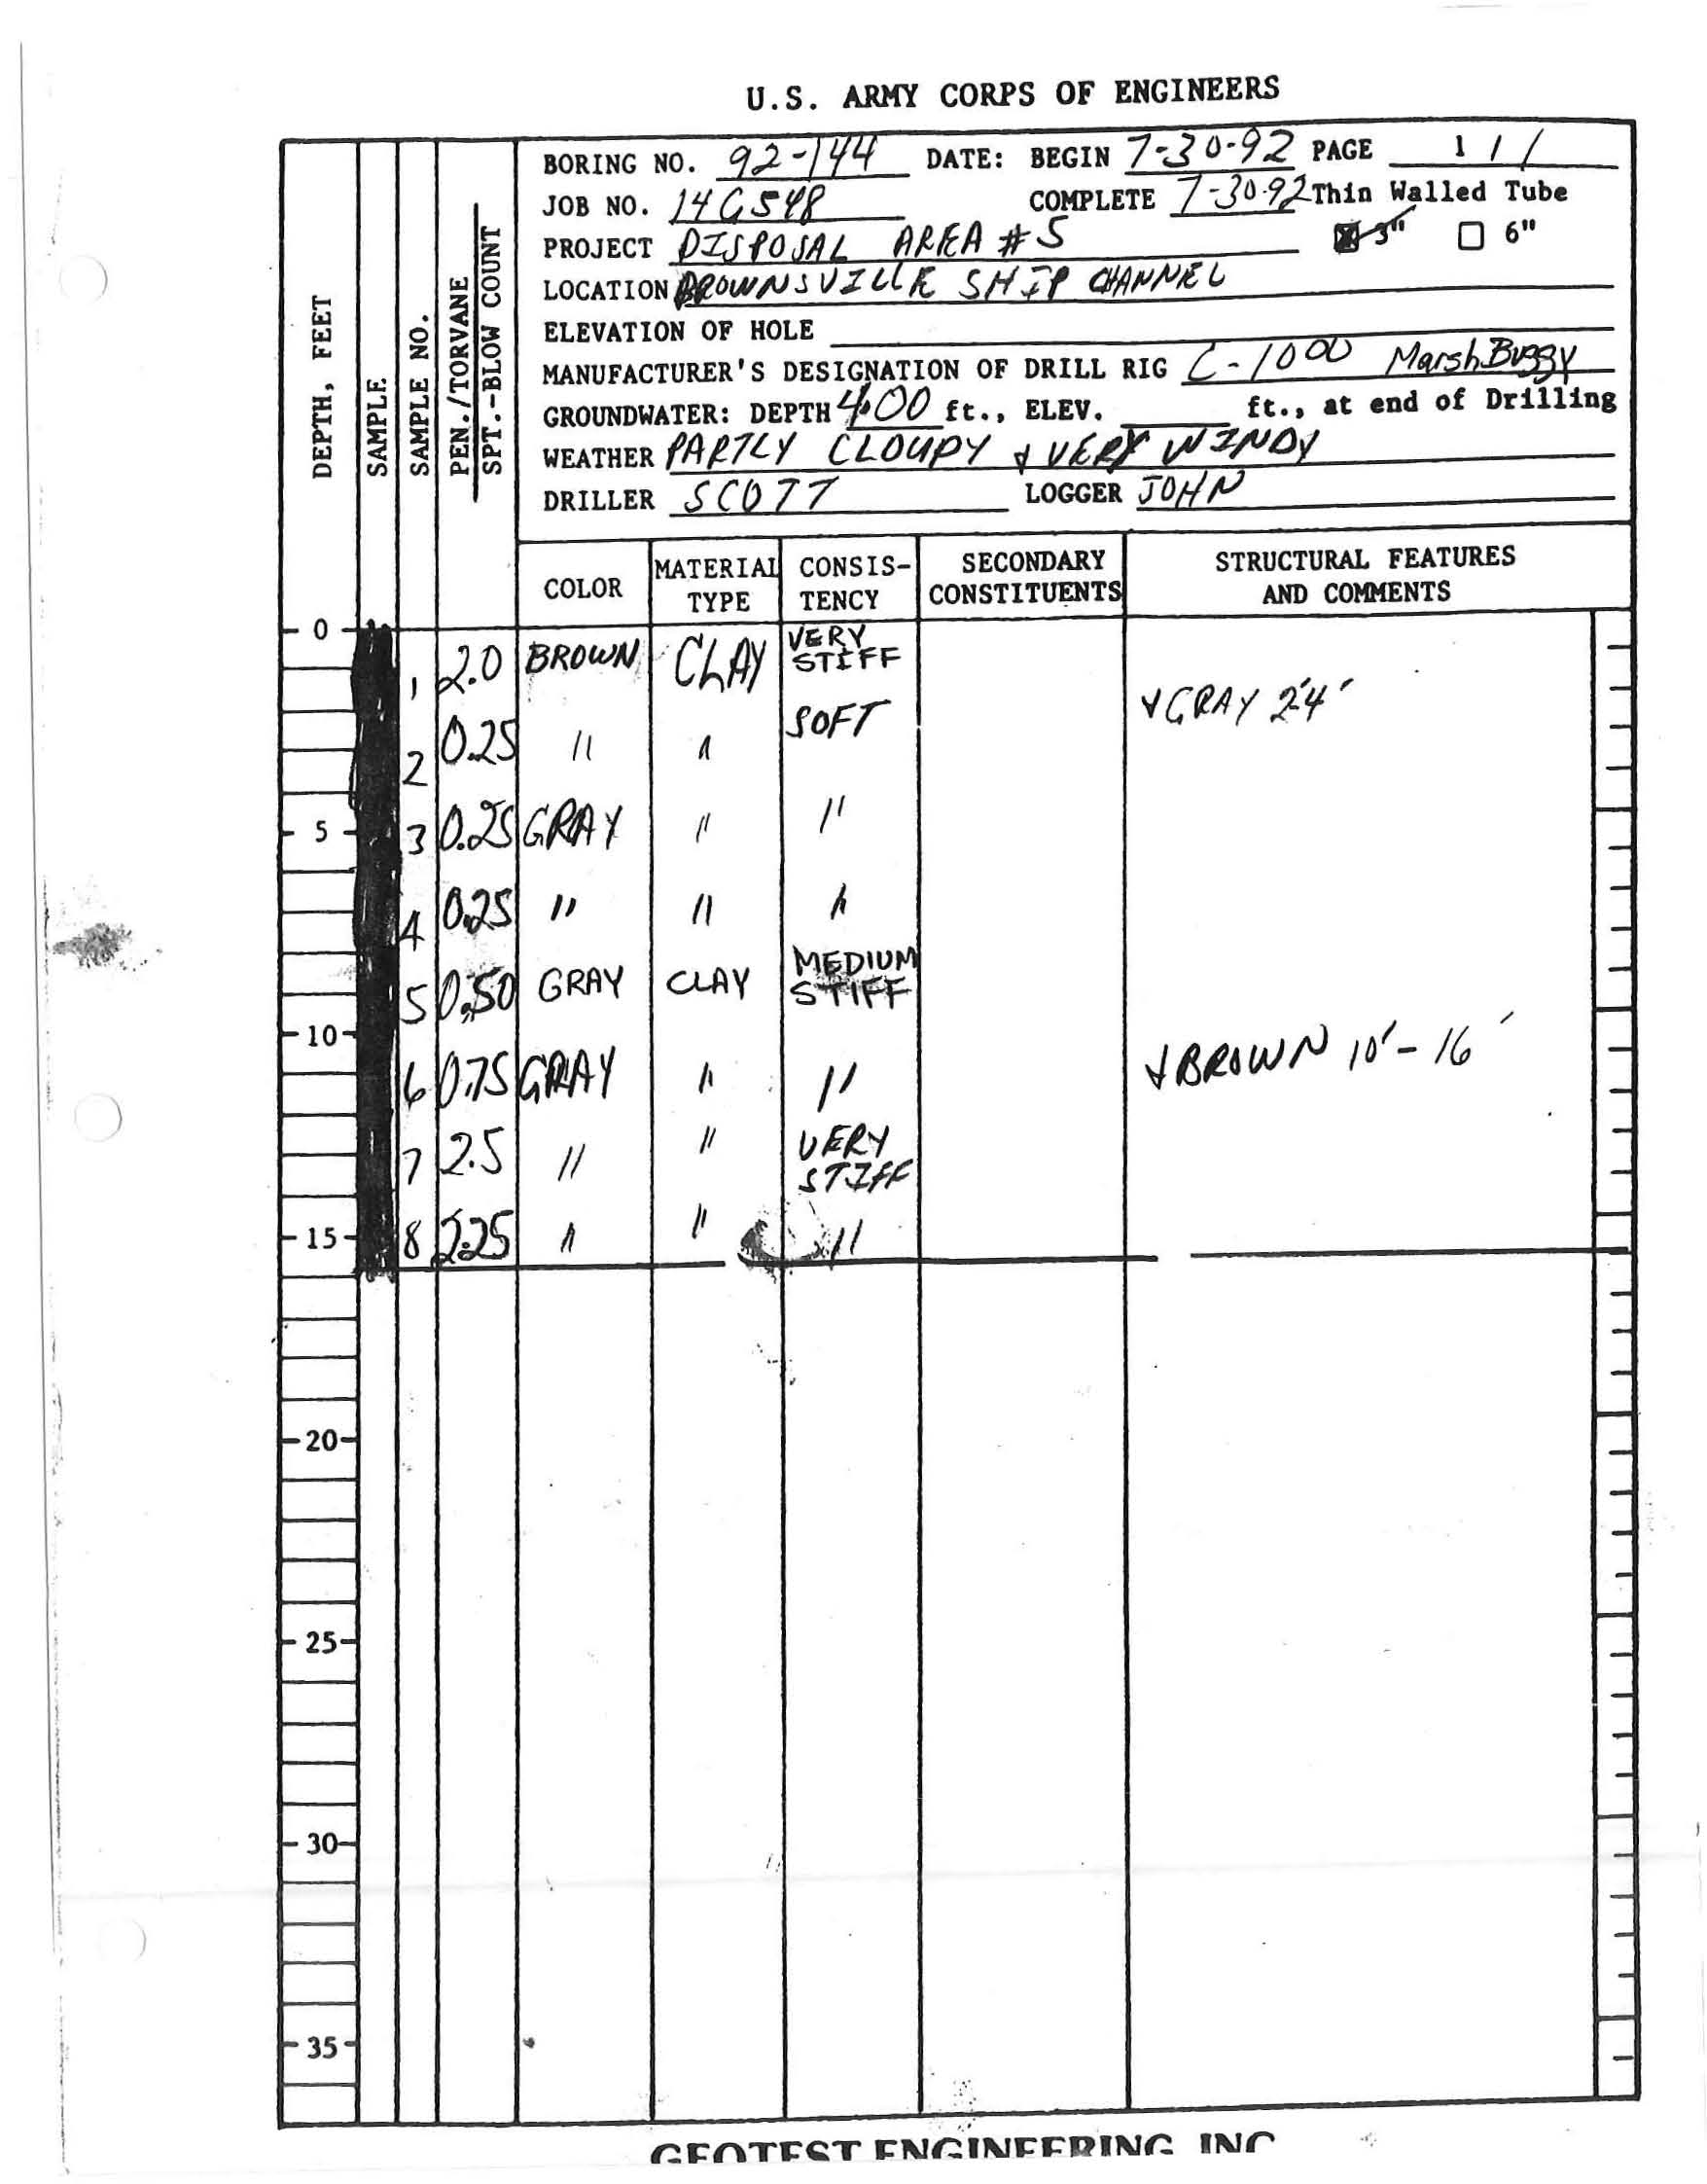 U.S. ARMY CORPS OF ENGINEERS
BORING NO. 92-144 DATE: BEGIN 7-30-92 PAGE 1 / 1
JOB NO. 14G548 COMPLETE 7-30-92 Thin Walled Tube
PROJECT DISPOSAL AREA #5 3" 6"
LOCATION BROWNSVILLE SHIP CHANNEL
ELEVATION OF HOLE
MANUFACTURER'S DESIGNATION OF DRILL RIG C-1000 Marsh Buggy
GROUNDWATER: DEPTH 4.00 ft., ELEV. ft., at end of Drilling
WEATHER PARTLY CLOUDY & VERY WINDY
DRILLER SCOTT LOGGER JOHN
DEPTH, FEET
SAMPLE
SAMPLE NO.
PEN./TORVANE
SPT.-BLOW COUNT
COLOR
MATERIAL
TYPE
CONSIS-
TENCY
SECONDARY
CONSTITUENTS
STRUCTURAL FEATURES
AND COMMENTS
0
1 2.0 BROWN CLAY VERY
STIFF
& GRAY 2'4'
2 0.25 " " SOFT
5
3 0.25 GRAY " "
4 0.25 " " "
5 0.50 GRAY CLAY MEDIUM
STIFF
10
6 0.75 GRAY " " & BROWN 10'-16'
7 2.5 " " VERY
STIFF
15
8 2.25 " " "
20
25
30
35
GEOTEST ENGINEERING, INC